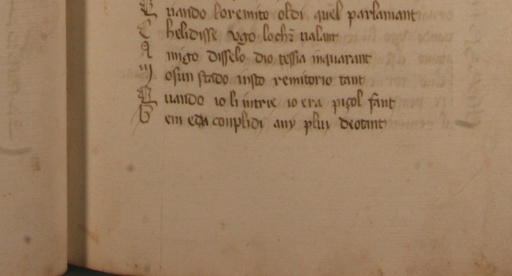 Quando loremito oldi quel parlamant
C helidisse ugo loch3 ualant
A migo disselo dio tessia inguarant
M osun stado insto remitorio tant
Quando io li intrie io era piçol fant
B em eda conplidi any plui de otant